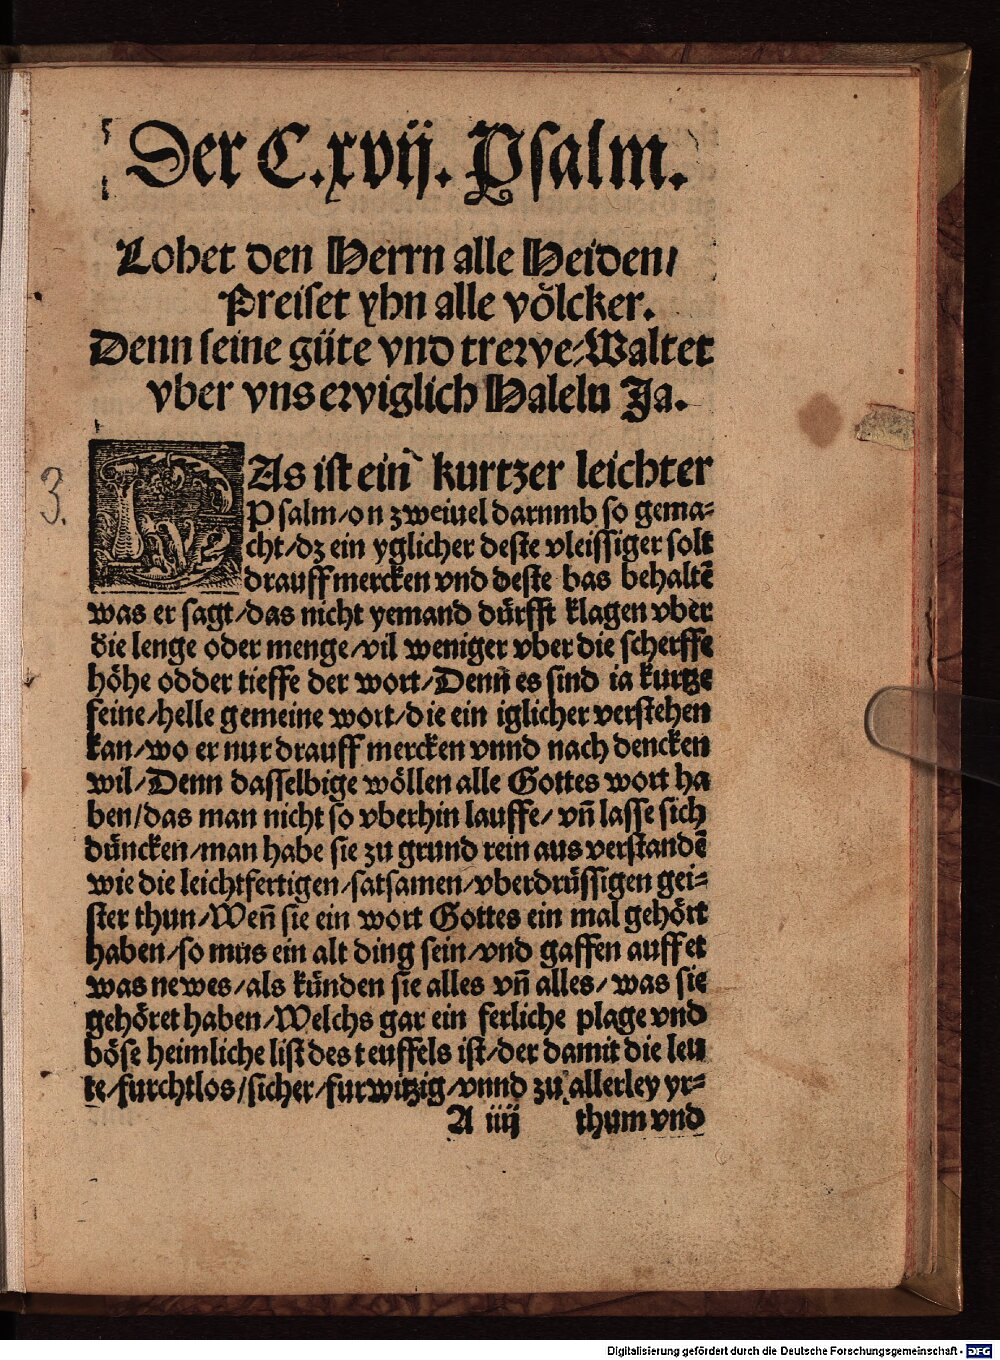 Der C.xvij. Psalm.
Lobet den Herrn alle Heiden/
Preiset yhn alle võlcker.
Denn seine güte vnd trewe/Waltet
vber vns ewiglich Halelu Ja.
3.
DAs ist ein kurtzer leichter
Psalm/on zweiuel darumb so gema⸗
cht/dz ein yglicher deste vleissiger solt
drauff mercken vnd deste bas behaltẽ
was er sagt/das nicht yemand dürfft klagen vber
die lenge oder menge/vil weniger vber die scherffe
höhe odder tieffe der wort/Denn es sind ia kurtze
feine/helle gemeine wort/die ein iglicher verstehen
kan/wo er nur drauff mercken vnnd nach dencken
wil/Denn dasselbige wöllen alle Gottes wort ha
ben/das man nicht so vberhin lauffe/ vñ lasse sich
düncken/man habe sie zu grund rein aus verstandẽ
wie die leichtfertigen/satsamen/vberdrüssigen gei⸗
ster thun/Weñ sie ein wort Gottes ein mal gehört
haben/so mus ein alt ding sein/vnd gaffen auff et
was newes/als künden sie alles vñ alles/ was sie
gehöret haben/Welchs gar ein ferliche plage vnd
böse heimliche list des teuffels ist/der damit die leu
te/furchtlos/sicher/furwitzig/vnnd zu allerley yr⸗
A iiij thum vnd
Digitalisierung gefördert durch die Deutsche Forschungsgemeinschaft - DFG